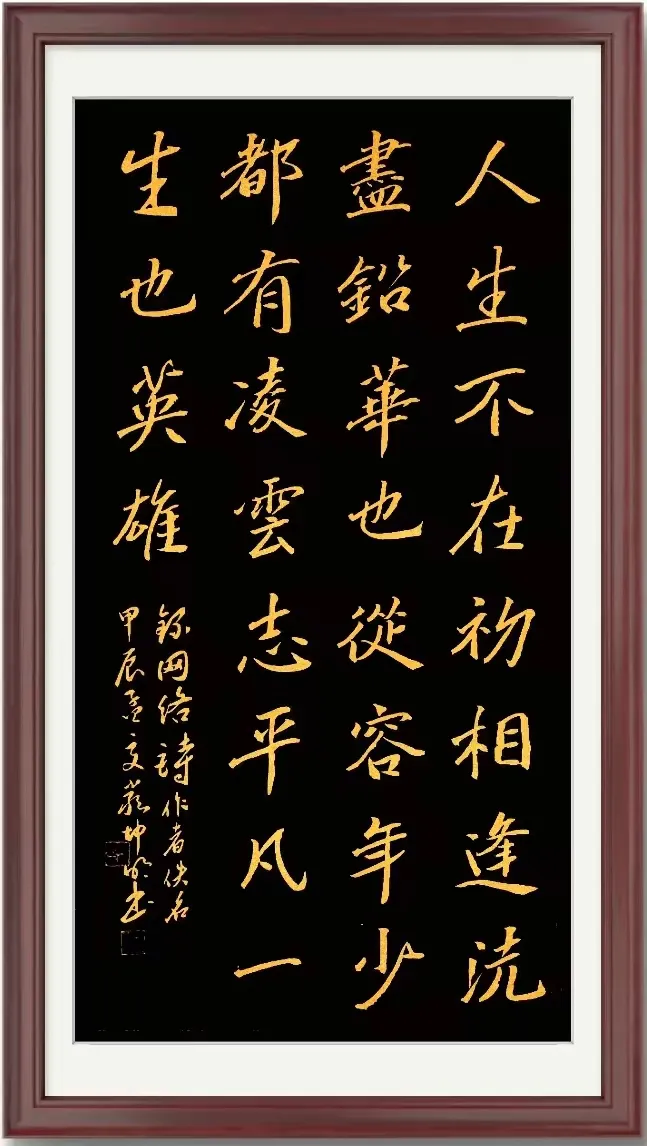 人生不在初相逢洗
盡鉛華也從容年少
都有凌雲志平凡一
生也英雄
錄网络詩作者佚名
甲辰孟夏蔡坤書